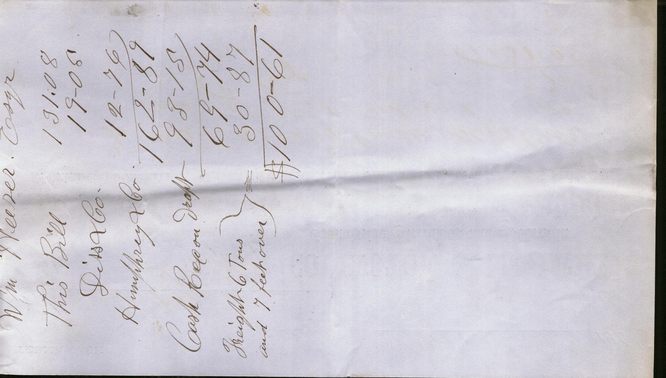 Wm Weaver. Esqr
This Bill 131.08
& Co. 19-05
Humphrey & Co. 12-76
162-89
Cash Recd on draft 93-15
69-74
Freight 6 Tons
and 7 feet over } = 30-87
$100-61